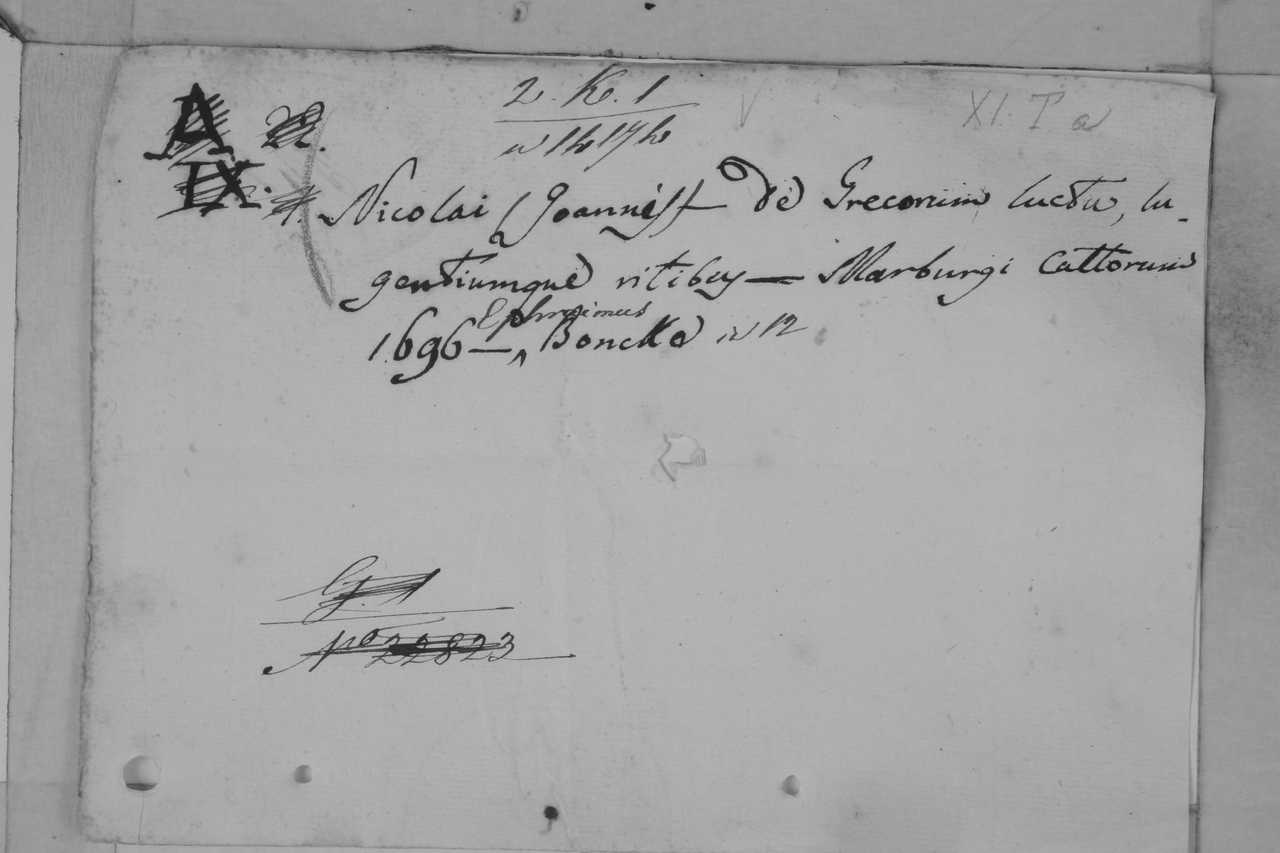 2. K. 1
XI. T a
A 22.
IX.
Nicolai (Joannis) De Grecorum luctu, lu-
gentiumque ritibus — Marburgi Cattorum
Ephraimus
1696 — ^ Boncke in 12
G. 1
No 22823